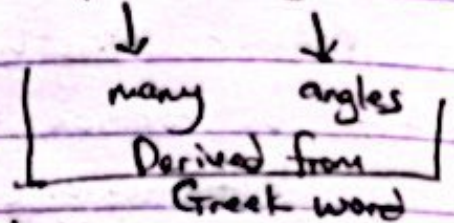 many angles
Derived from
Greek word